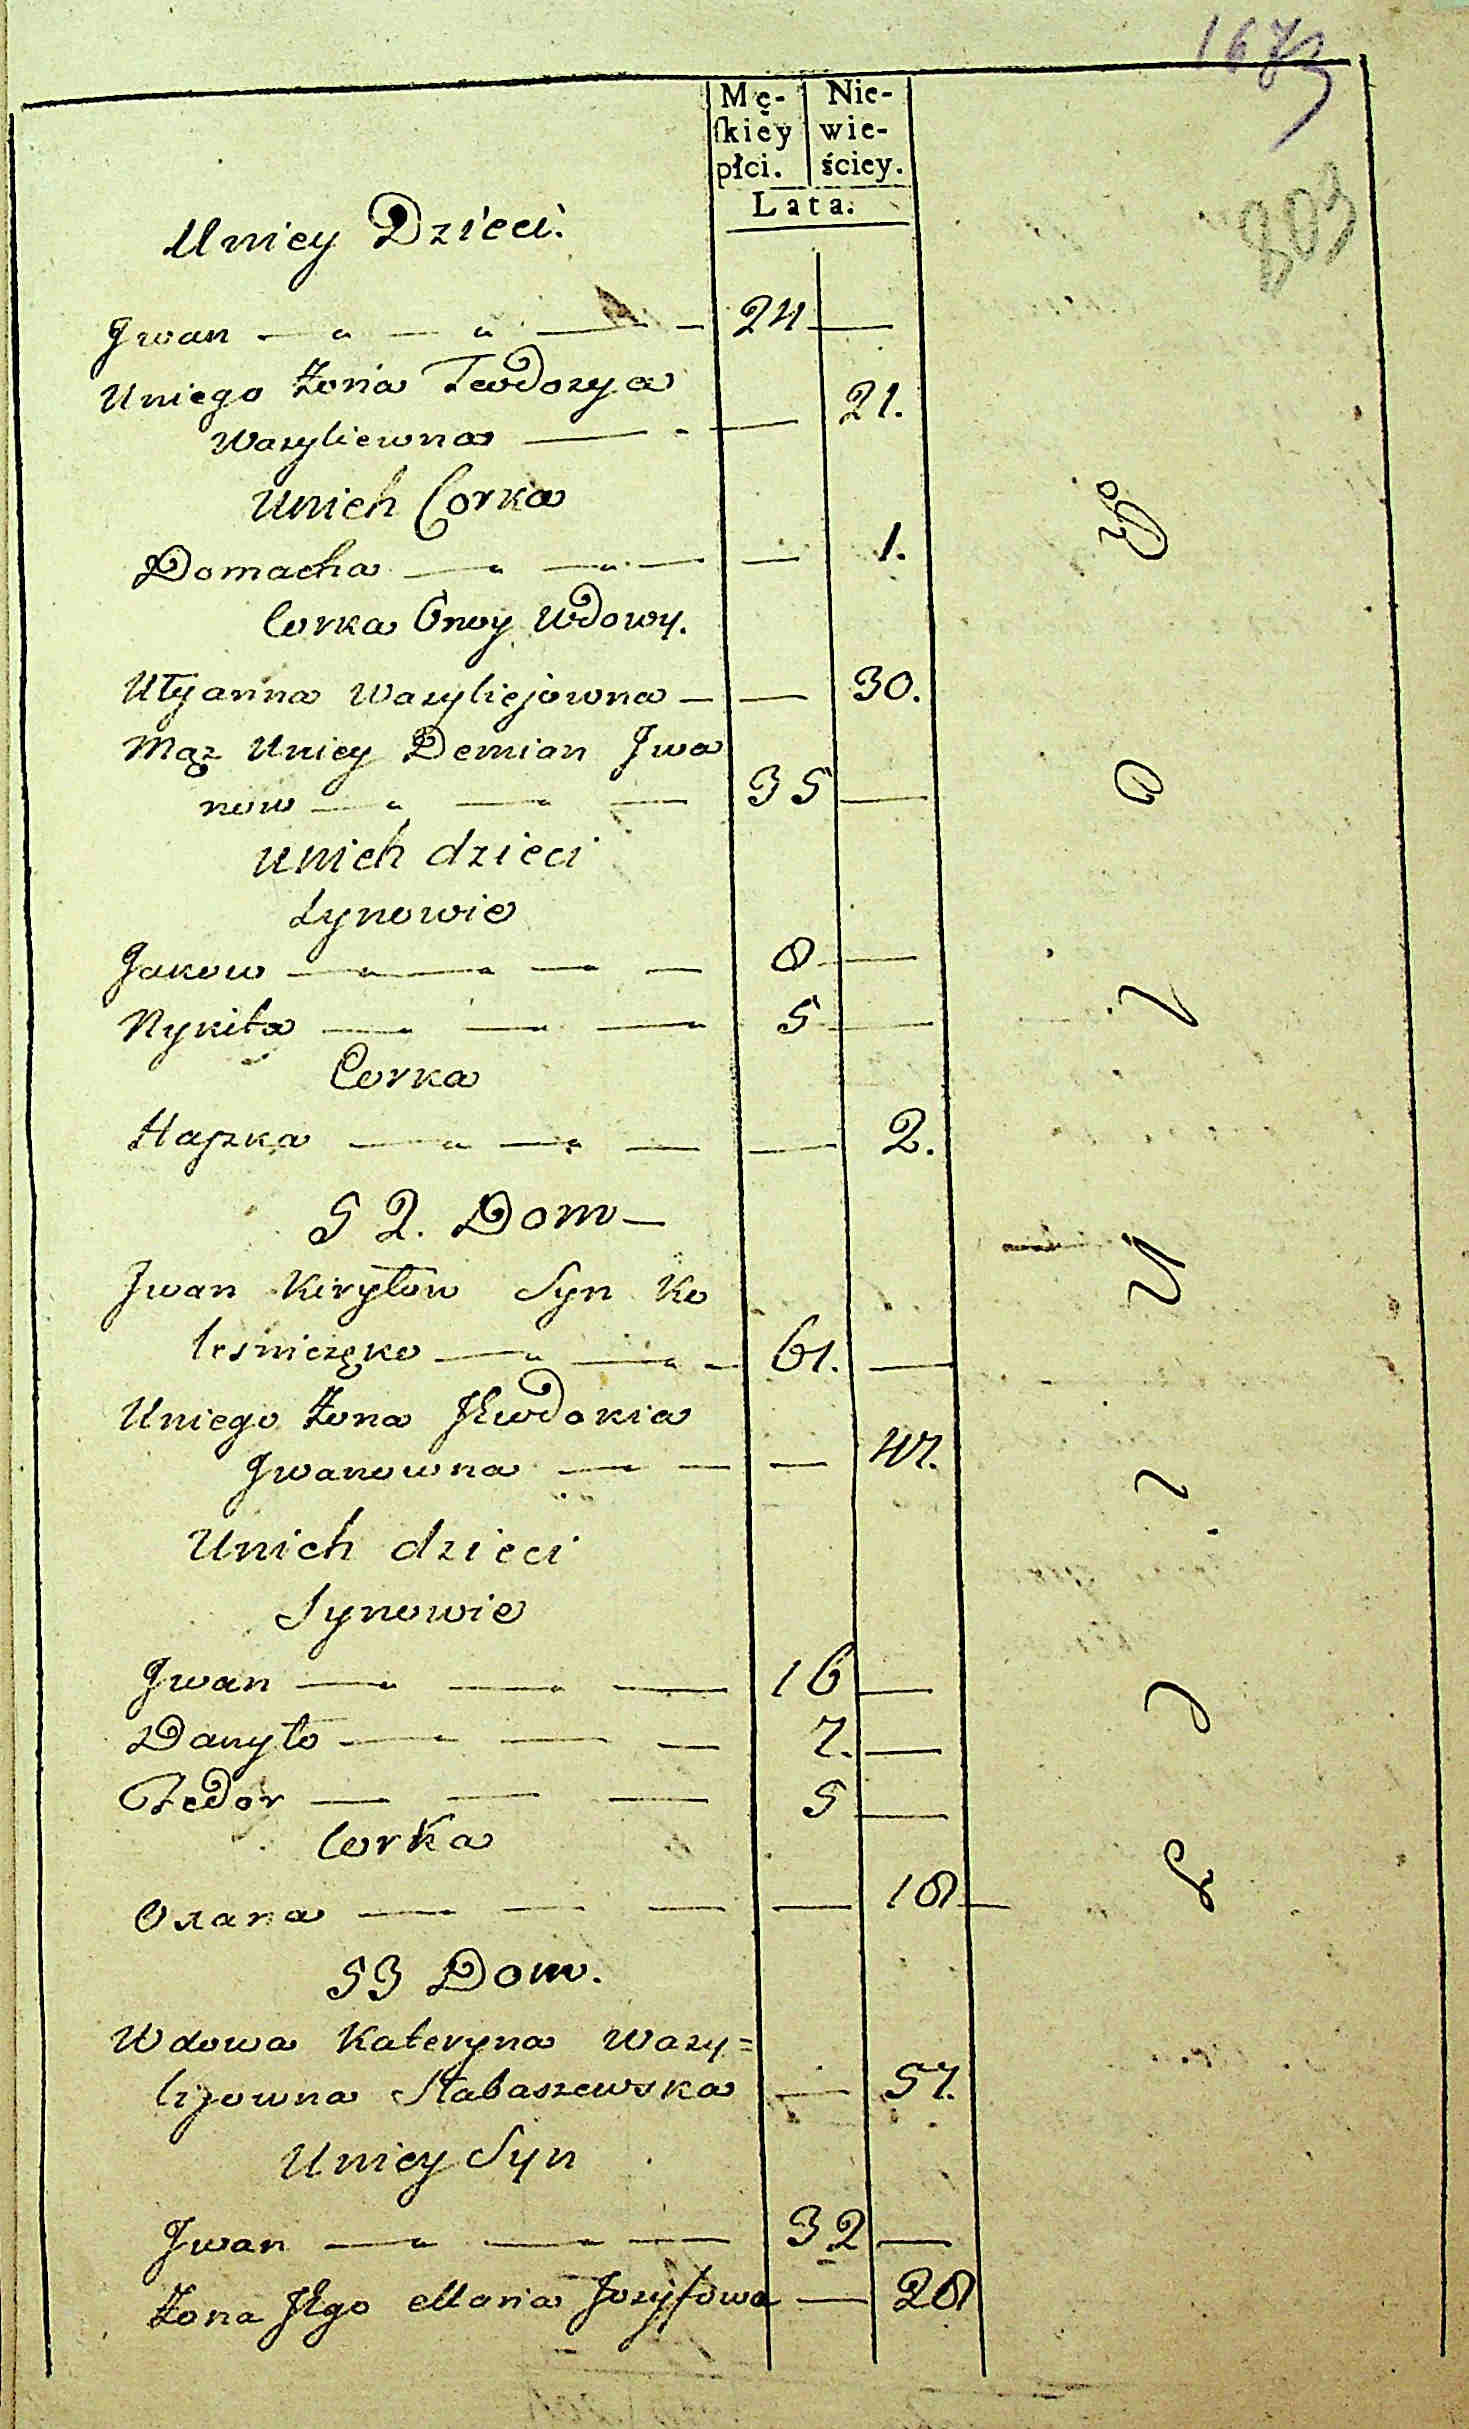 Mę- Nie-
ſkiey wie-
płci. ściey.
Lata.
803
Uniey Dzieci.
Jwan — „ — „ — — 24 —
Uniego Żona Teodozya
Wasyliewna — - — 21.
Unich Corka
Domacha — „ — „ — — 1.
Corka Onoy Wdowy.
Ulyanna Wasyliejowna — — 30.
Mąz Uniey Demian Jwa
now — „ — „ — 35 —
Unich dzieci
Synowie
Jakow — „ — „ — — 8 —
Nykita — „ — „ — „ 5 —
Corka
Hapka — „ — „ — — 2.
52. Dom —
Jwan Kiryłow Syn Ko
lesniczęko — „ — „ — 61. —
Uniego Żona Jewdokia
Jwanowna — „ — — 47.
Unich dzieci
Synowie
Jwan — „ — „ — 16 —
Danyło — „ — — 7. —
Fedor — — — 5 —
Corka
Oxana — „ — — — 18 —
53 Dom.
Wdowa Kateryna Wasy=
lijowna Słabaszewska — 57.
Uniey Syn
Jwan — „ — „ — „ 32 —
Żona Jego Maria Jozyfowa — 28